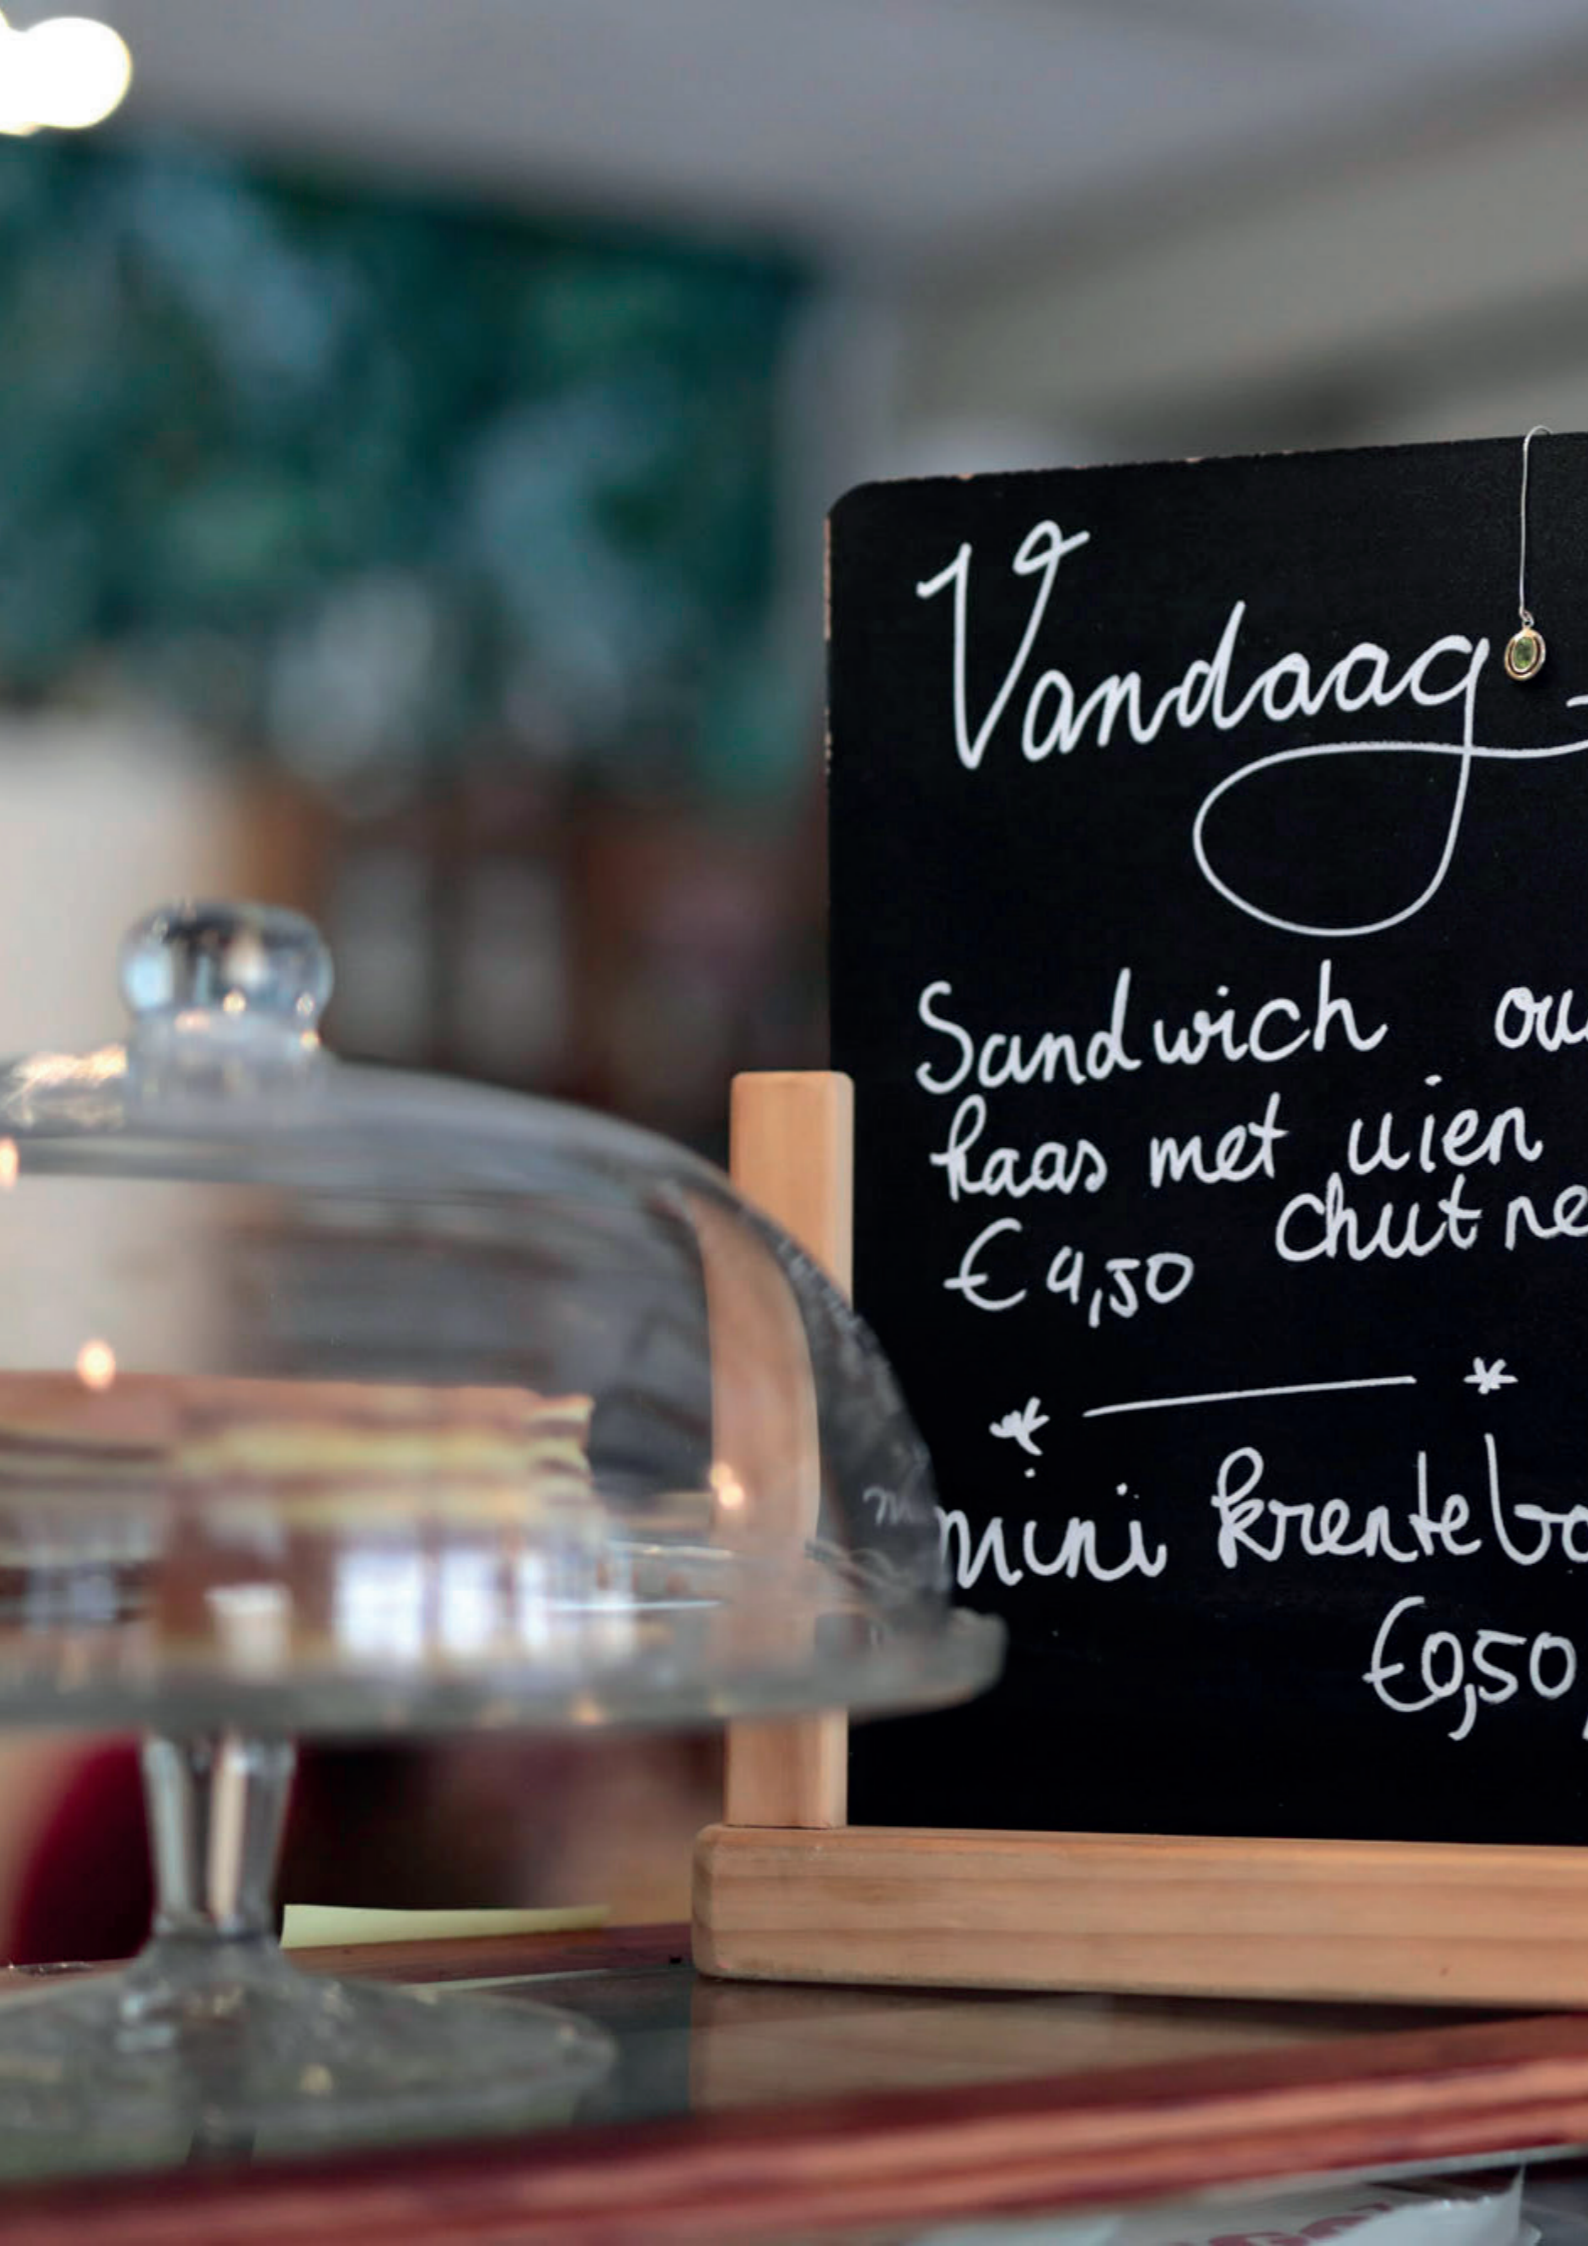 Vandaag
Sandwich ou
kaas met uien
chutne
€ 4,50
* — *
mini krentebo
€0,50,